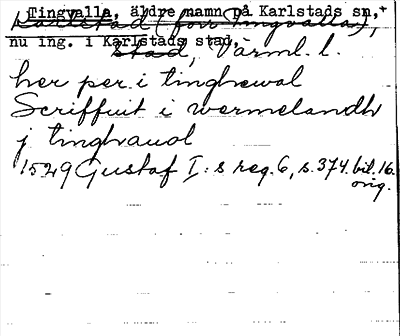 Tingvalla, äldre namn på Karlstads sn,+
Karlstad (förr Tingvalla),
nu ing. i Karlstads stad,
stad, Värml. l.
her per i tinghwal
Scriffuit i wermelandh
j tinghauol
1529 Gustaf I:s reg. 6, s. 374. bil. 16.
orig.